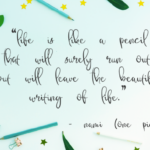 "life is like a pencil
that will surely run out
but will leave the beautiful
writing of life."
- nami (one pi